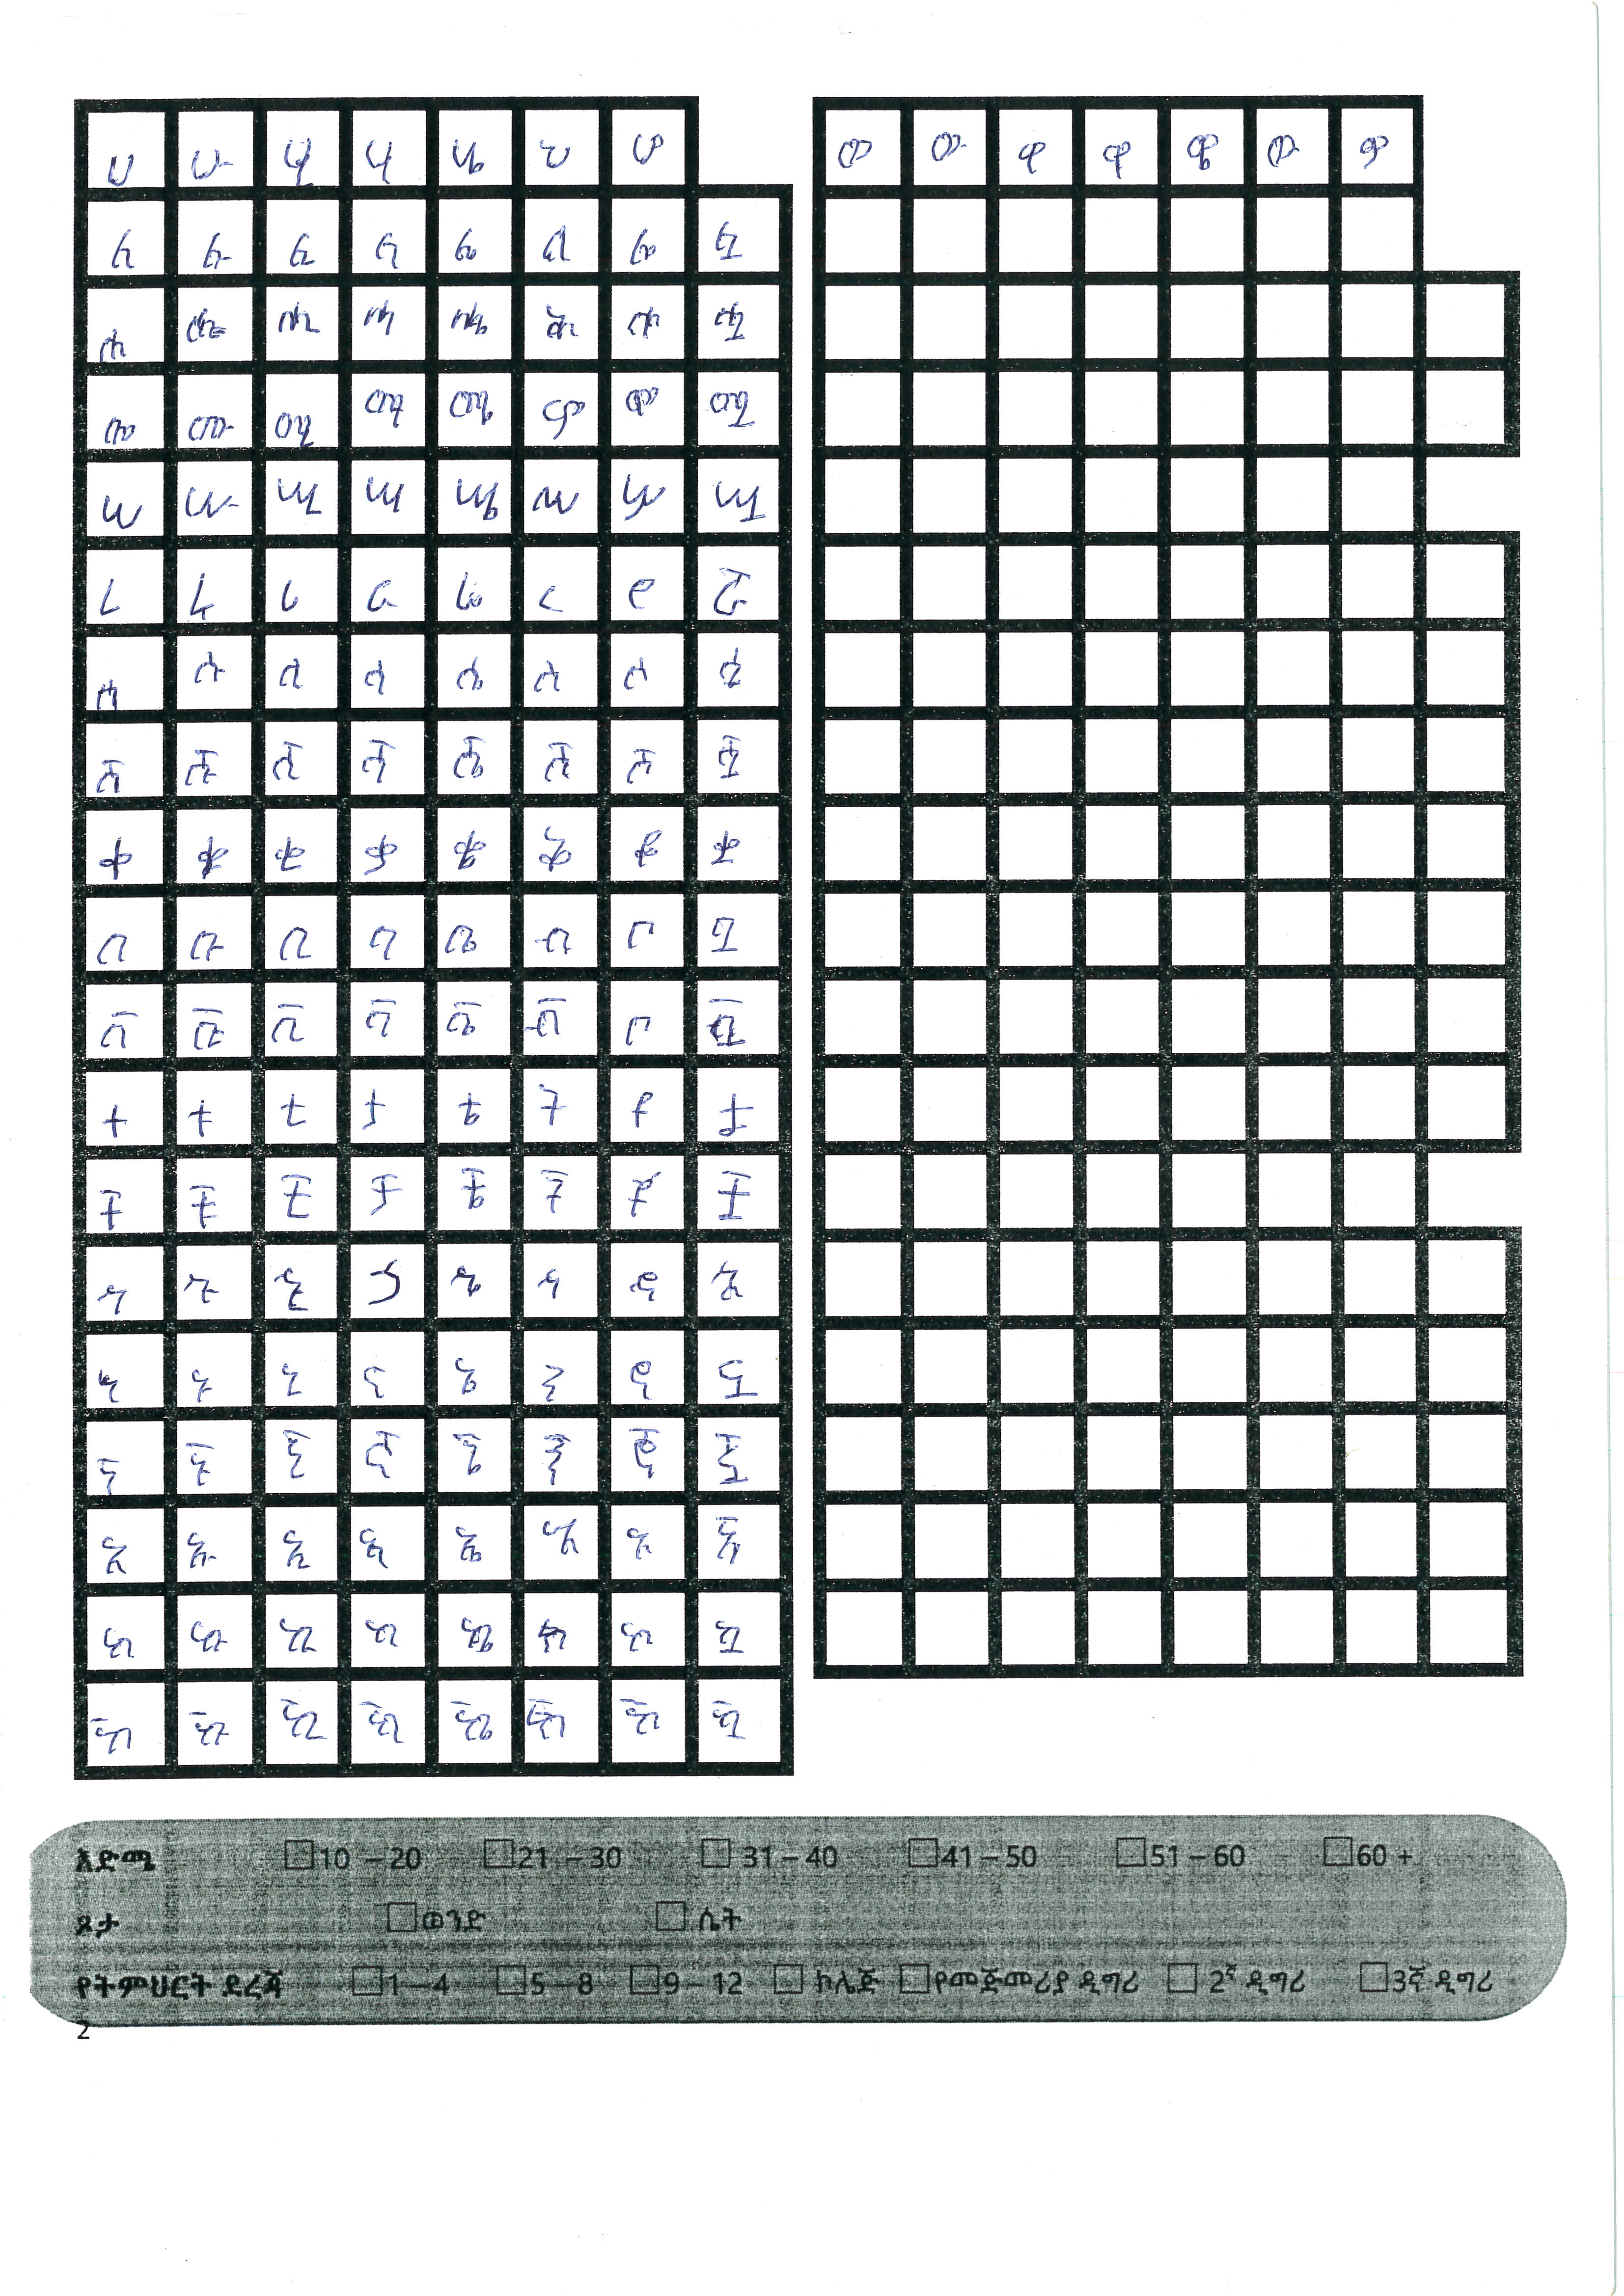 ሀ ሁ ሂ ሃ ሄ ህ ሆ ወ ዉ ዊ ዋ ዌ ው ዎ
ለ ሉ ሊ ላ ሌ ል ሎ ሏ
ሐ ሑ ሒ ሓ ሔ ሕ ሖ ሗ
መ ሙ ሚ ማ ሜ ም ሞ ሟ
ሠ ሡ ሢ ሣ ሤ ሥ ሦ ሧ
ረ ሩ ሪ ራ ሬ ር ሮ ሯ
ሰ ሱ ሲ ሳ ሴ ስ ሶ ሷ
ሸ ሹ ሺ ሻ ሼ ሽ ሾ ሿ
ቀ ቁ ቂ ቃ ቄ ቅ ቆ ቋ
በ ቡ ቢ ባ ቤ ብ ቦ ቧ
ቨ ቩ ቪ ቫ ቬ ቭ ቮ ቯ
ተ ቱ ቲ ታ ቴ ት ቶ ቷ
ቸ ቹ ቺ ቻ ቼ ች ቾ ቿ
ኀ ኁ ኂ ኃ ኄ ኅ ኆ ኋ
ነ ኑ ኒ ና ኔ ን ኖ ኗ
ኘ ኙ ኚ ኛ ኜ ኝ ኞ ኟ
አ ኡ ኢ ኣ ኤ እ ኦ ኧ
ከ ኩ ኪ ካ ኬ ክ ኮ ኳ
ኸ ኹ ኺ ኻ ኼ ኽ ኾ ዃ
እድሜ 10 – 20 21 – 30 31 – 40 41 – 50 51 – 60 60 +
ጾታ ወንድ ሴት
የትምህርት ደረጃ 1 – 4 5 – 8 9 – 12 ኮሌጅ የመጀመሪያ ዲግሪ 2ኛ ዲግሪ 3ኛ ዲግሪ
2